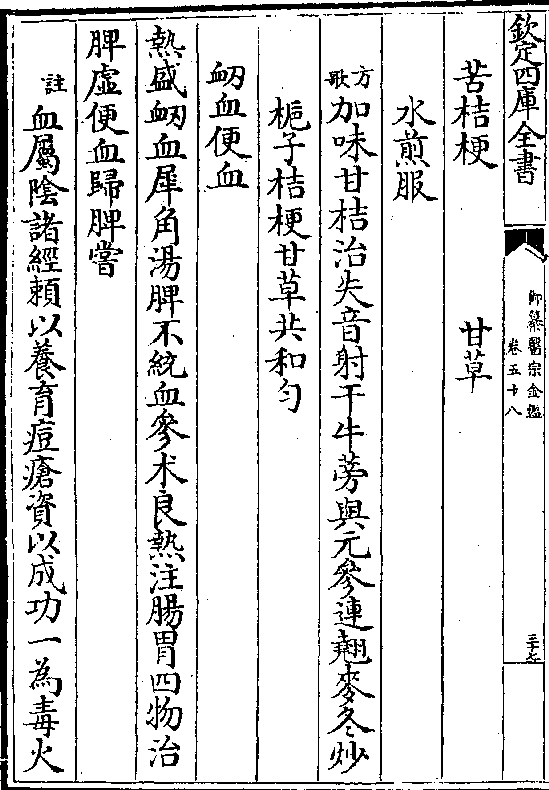 欽定四庫全書
御纂醫宗金鑑
卷五十八
苦桔梗 甘草
水煎服
方歌 加味甘桔治失音射干牛蒡與元參連翹麥冬炒
梔子桔梗甘草共和勻
衂血便血
熱盛衂血犀角湯脾不統血參朮良熱注腸胃四物治
脾虛便血歸脾嘗
註 血屬陰諸經賴以養育痘瘡資以成功一為毒火